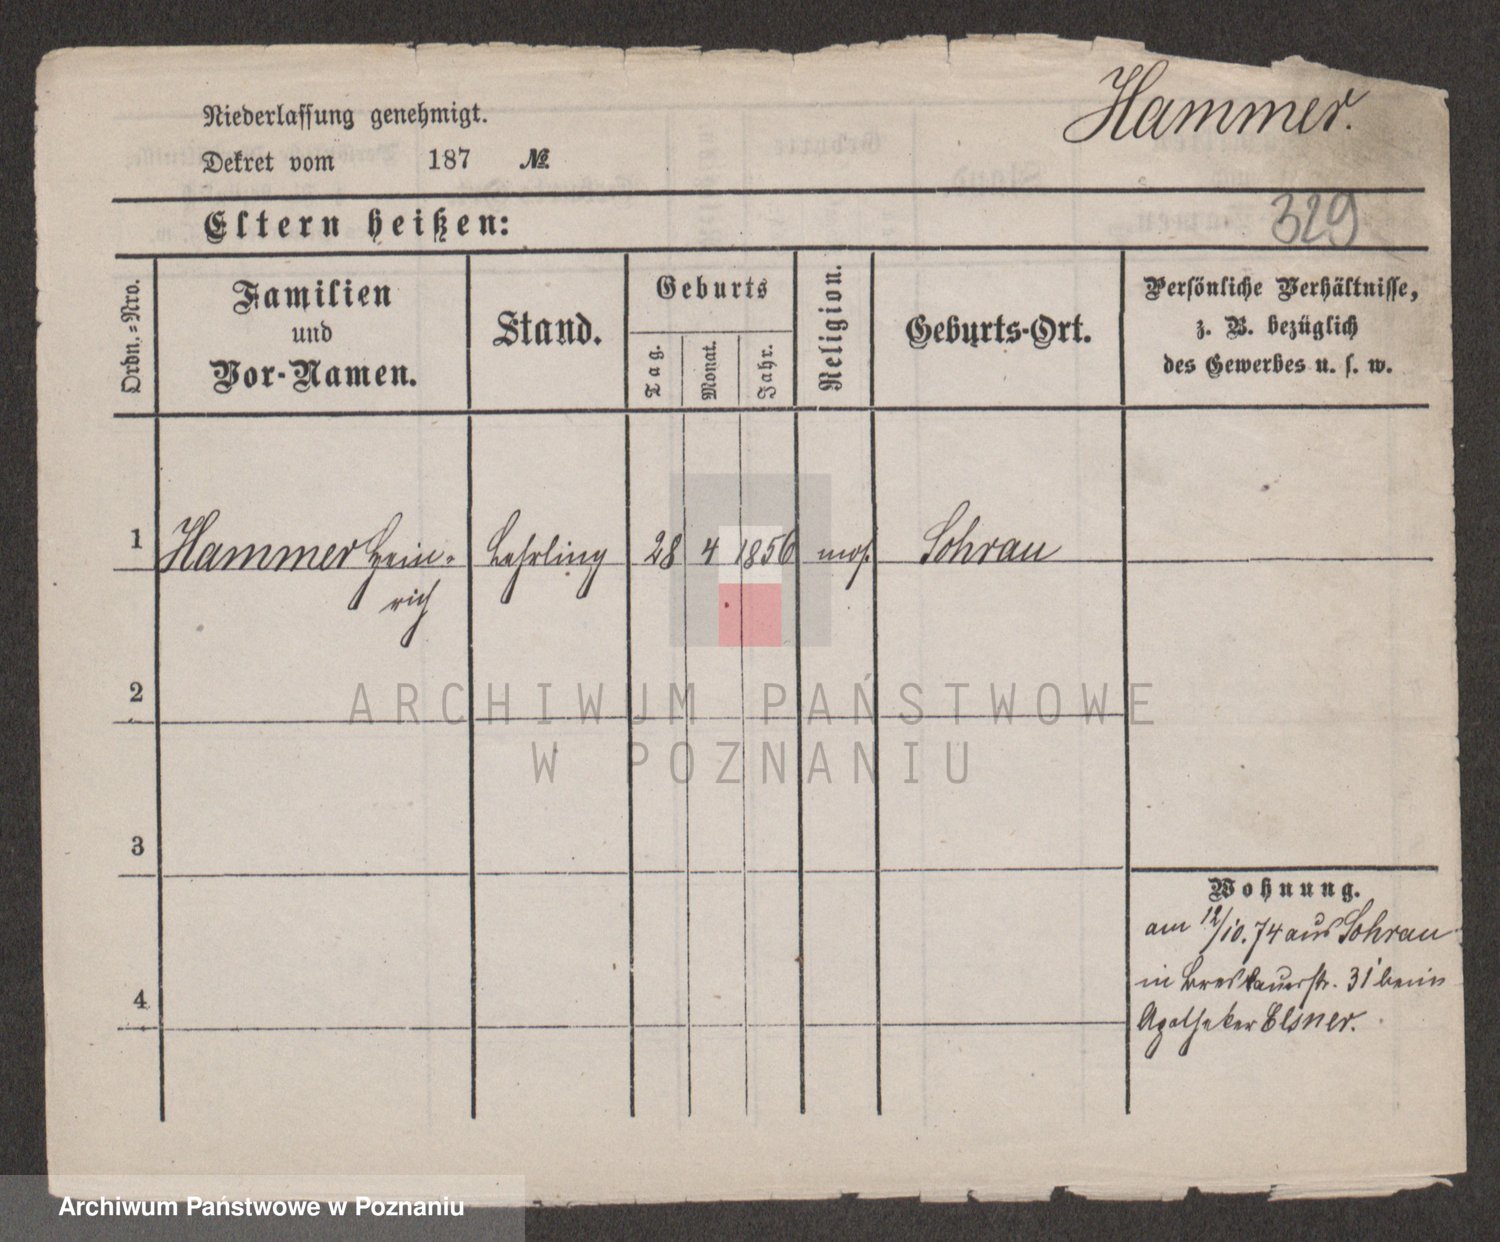 Hammer.
Niederlassung genehmigt.
Dekret vom 187 №
329
Eltern heißen:
Ordn.-Nro.
Familien
und
Vor-Namen.
Stand.
Geburts
Tag.
Monat.
Jahr.
Religion.
Geburts-Ort.
Persönliche Verhältnisse,
z. B. bezüglich
des Gewerbes u. s. w.
1 Hammer Hein-
rich
Lehrling 28 4 1856 mos. Sohrau
2
ARCHIWUM PAŃSTWOWE
W POZNANIU
3
Wohnung.
am 12/10. 74 aus Sohrau
in Breslauerstr. 31 beim
Apotheker Elsner.
4
Archiwum Państwowe w Poznaniu